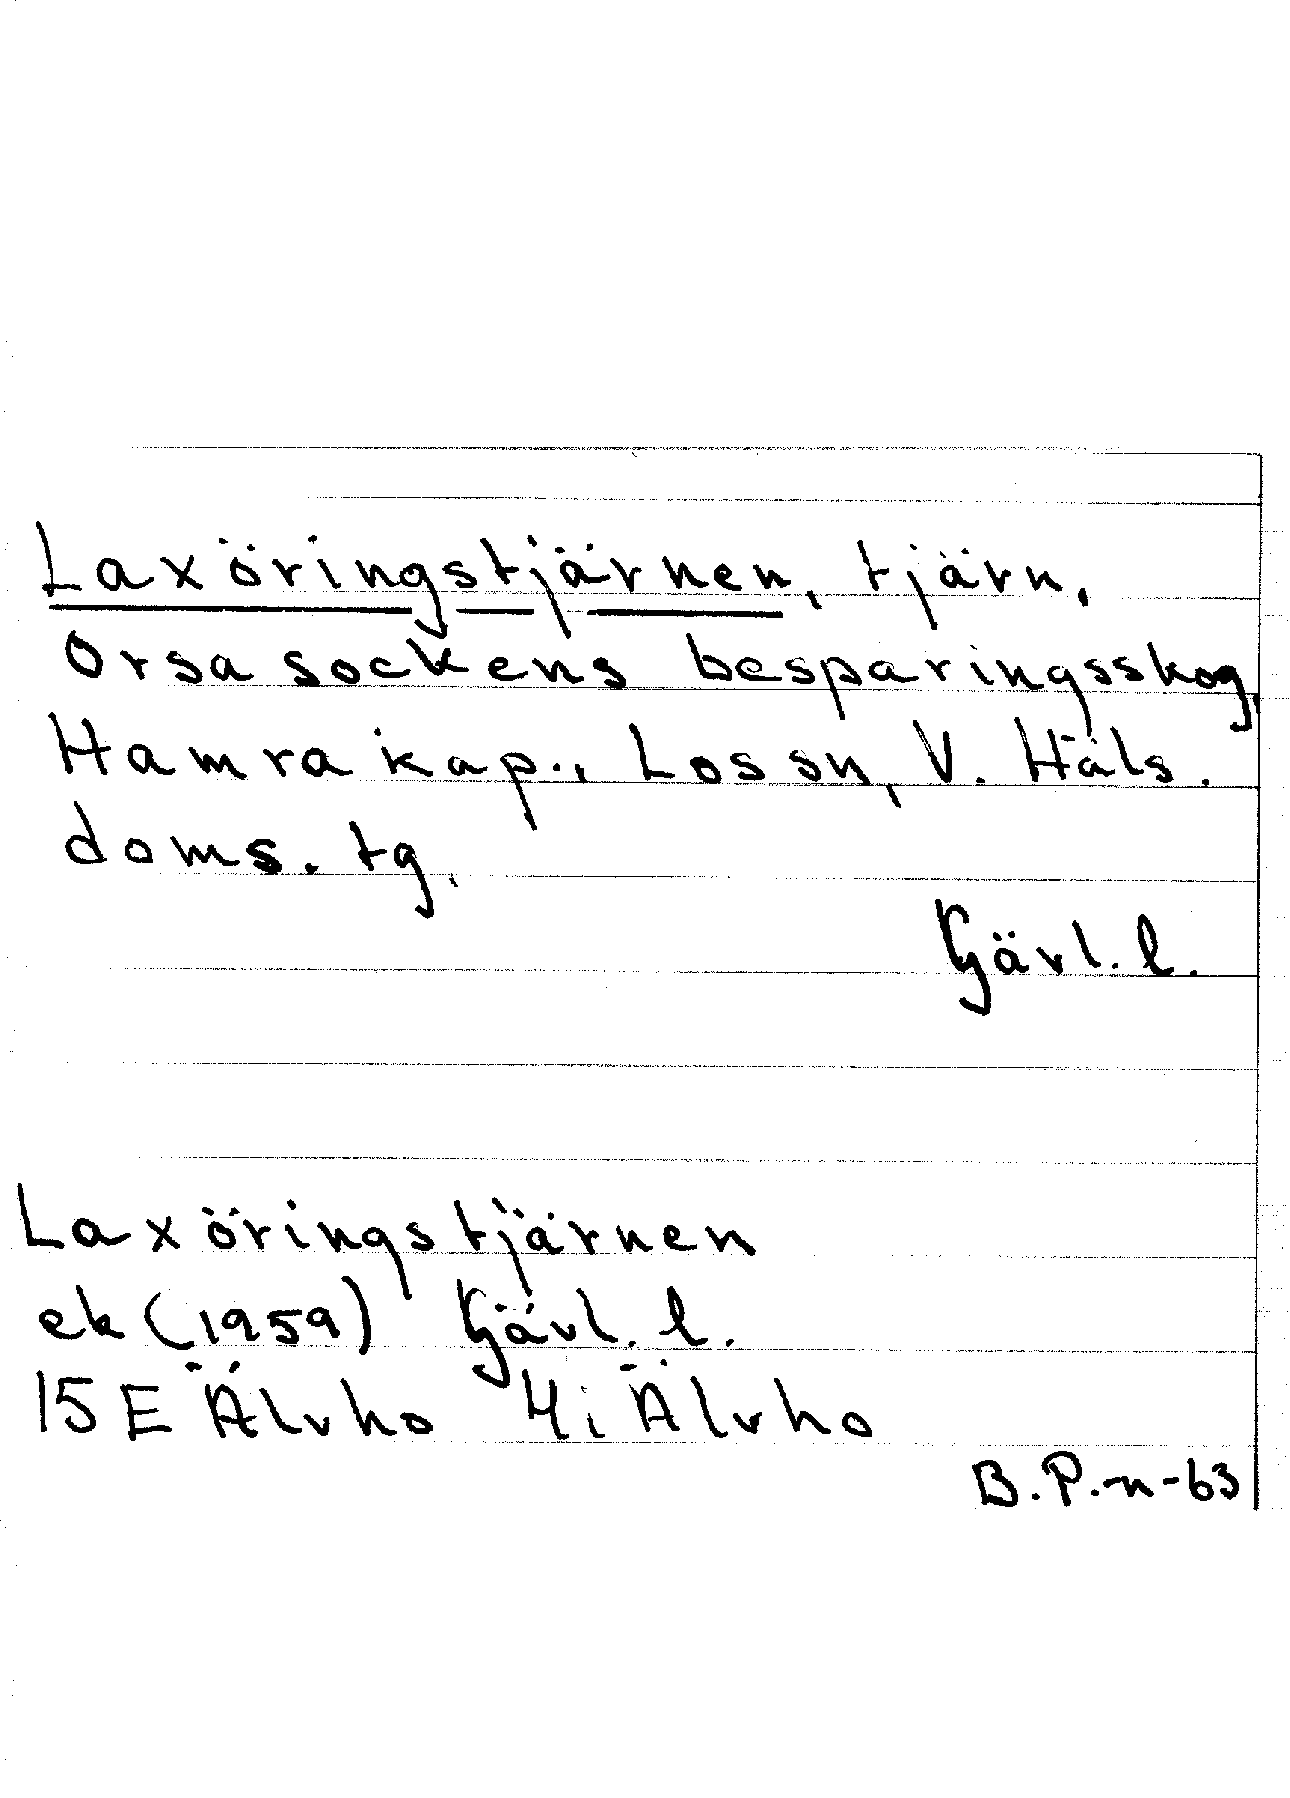 Laxöringstjärnen, tjärn,
Orsa sockens besparingsskog,
Hamra kap., Los sn, V. Häls.
doms. tg.
Gävl. l.
Laxöringstjärnen
ek (1959) Gävl. l.
15E Älvho 4i Älvho
B.P.-n-63